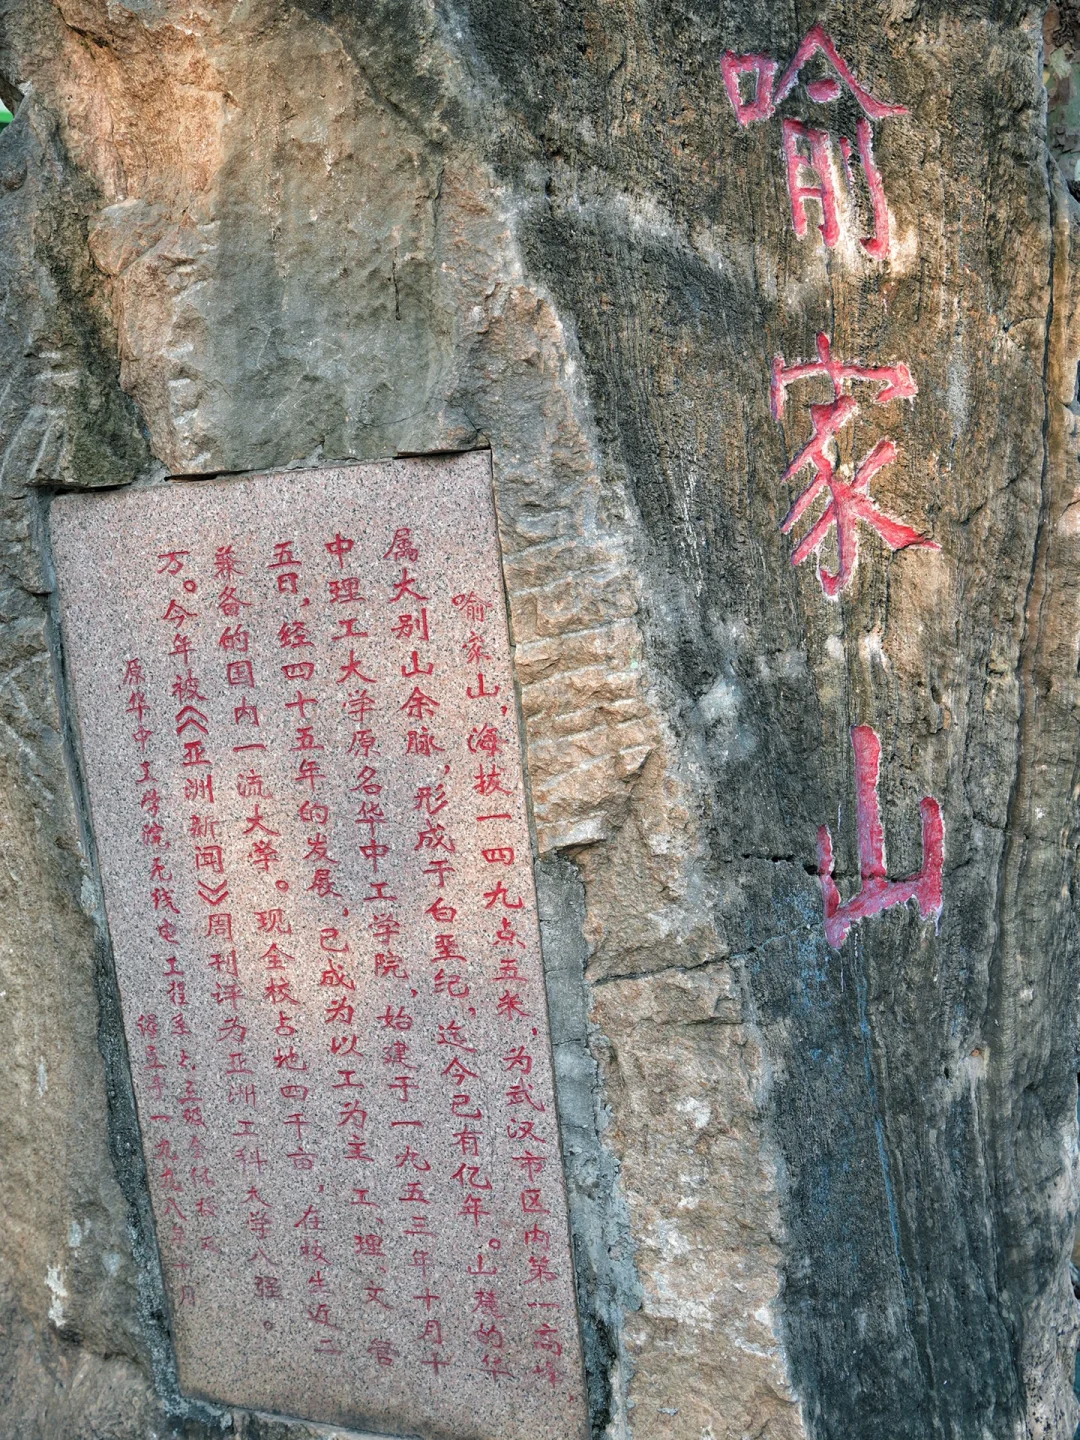 喻家山
喻家山，海拔一四九点五米，为武汉市区内第一高峰，
属大别山余脉，形成于白垩纪，迄今已有亿年。山麓的华
中理工大学原名华中工学院，始建于一九五三年十月十
五日，经四十五年的发展，已成为以工为主 工、理、文、管
兼备的国内一流大学。现全校占地四千亩，在校生近二
万。今年被《亚洲新闻》周刊评为亚洲工科大学八强。
原华中工学院无线电工程系六三级全体校友
一九九八年十月